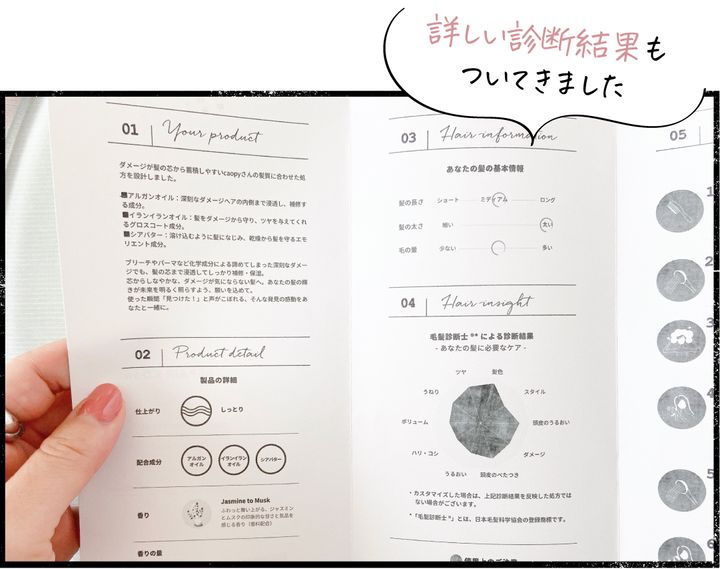 詳しい診断結果も
ついてきました
01 Your product
ダメージが髪の芯から蓄積しやすいcaopyさんの髪質に合わせた処
方を設計しました。
■アルガンオイル：深刻なダメージヘアの内側まで浸透し、補修す
る成分。
■イランイランオイル：髪をダメージから守り、ツヤを与えてくれ
るグロスコート成分。
■シアバター：溶け込むように髪になじみ、乾燥から髪を守るエモ
リエント成分。
ブリーチやパーマなど化学成分による諦めてしまった深刻なダメー
ジでも、髪の芯まで浸透してしっかり補修・保湿。
芯からしなやかな、ダメージが気にならない髪へ。あなたの髪の輝
きが未来を明るく照らすよう、願いを込めて。
使った瞬間「見つけた！」と声がこぼれる、そんな発見の感動をあ
なたと一緒に。
02 Product detail
製品の詳細
仕上がり しっとり
配合成分 アルガンオイル イランイランオイル シアバター
香り Jasmine to Musk
ふわっと舞い上がる、ジャスミン
とムスクの印象的な甘さと気品を
感じる香り（香料配合）
香りの量
03 Hair information
あなたの髪の基本情報
髪の長さ ショート ミディアム ロング
髪の太さ 細い 太い
毛の量 少ない 多い
04 Hair insight
毛髪診断士®*による診断結果
- あなたの髪に必要なケア -
ツヤ 髪色
うねり スタイル
ボリューム 頭皮のうるおい
ハリ・コシ ダメージ
うるおい 頭皮のべたつき
* カスタマイズした場合は、上記診断結果を反映した処方では
ない場合がございます。
*「毛髪診断士®」とは、日本毛髪科学協会の登録商標です。
05
1
2
3
4
5